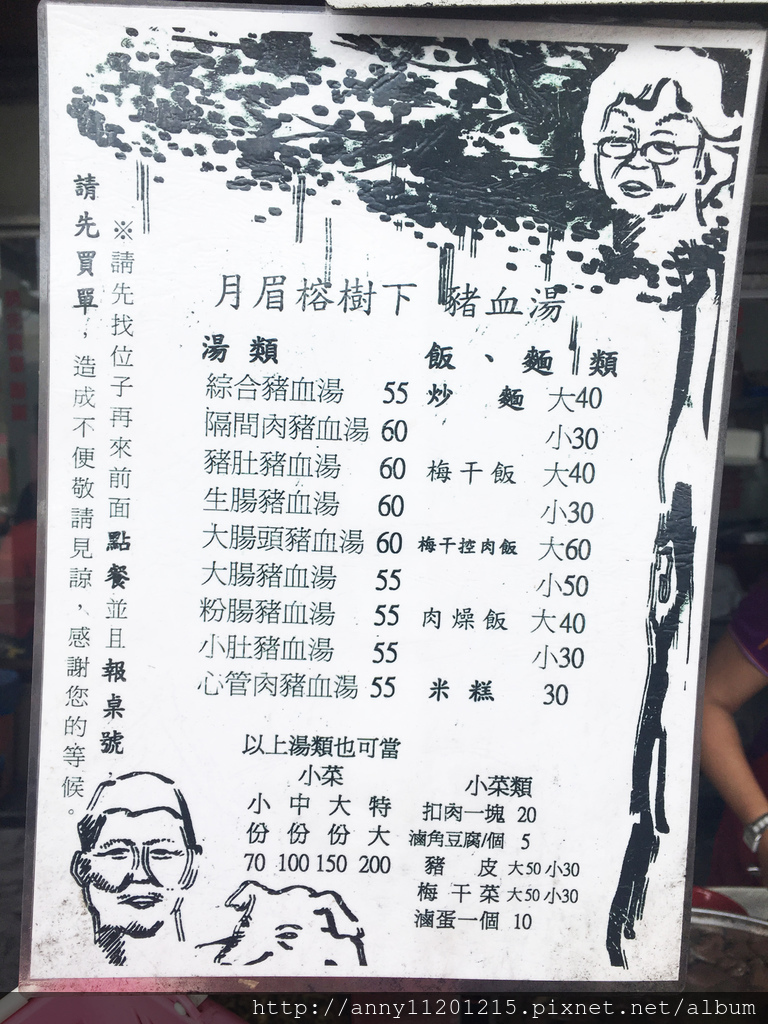 月眉榕樹下 豬血湯
※請先找位子再來前面點餐並且報桌號
請先買單，造成不便敬請見諒，感謝您的等候。
湯 類
綜合豬血湯 55
隔間肉豬血湯 60
豬肚豬血湯 60
生腸豬血湯 60
大腸頭豬血湯 60
大腸豬血湯 55
粉腸豬血湯 55
小肚豬血湯 55
心管肉豬血湯 55
飯、麵 類
炒 麵 大40
小30
梅干飯 大40
小30
梅干控肉飯 大60
小50
肉燥飯 大40
小30
米糕 30
以上湯類也可當
小菜
小 中 大 特
份 份 份 大
70 100 150 200
小菜類
扣肉一塊 20
滷角豆腐/個 5
豬 皮 大50 小30
梅 干 菜 大50 小30
滷蛋一個 10
http://anny11201215.pixnet.net/album